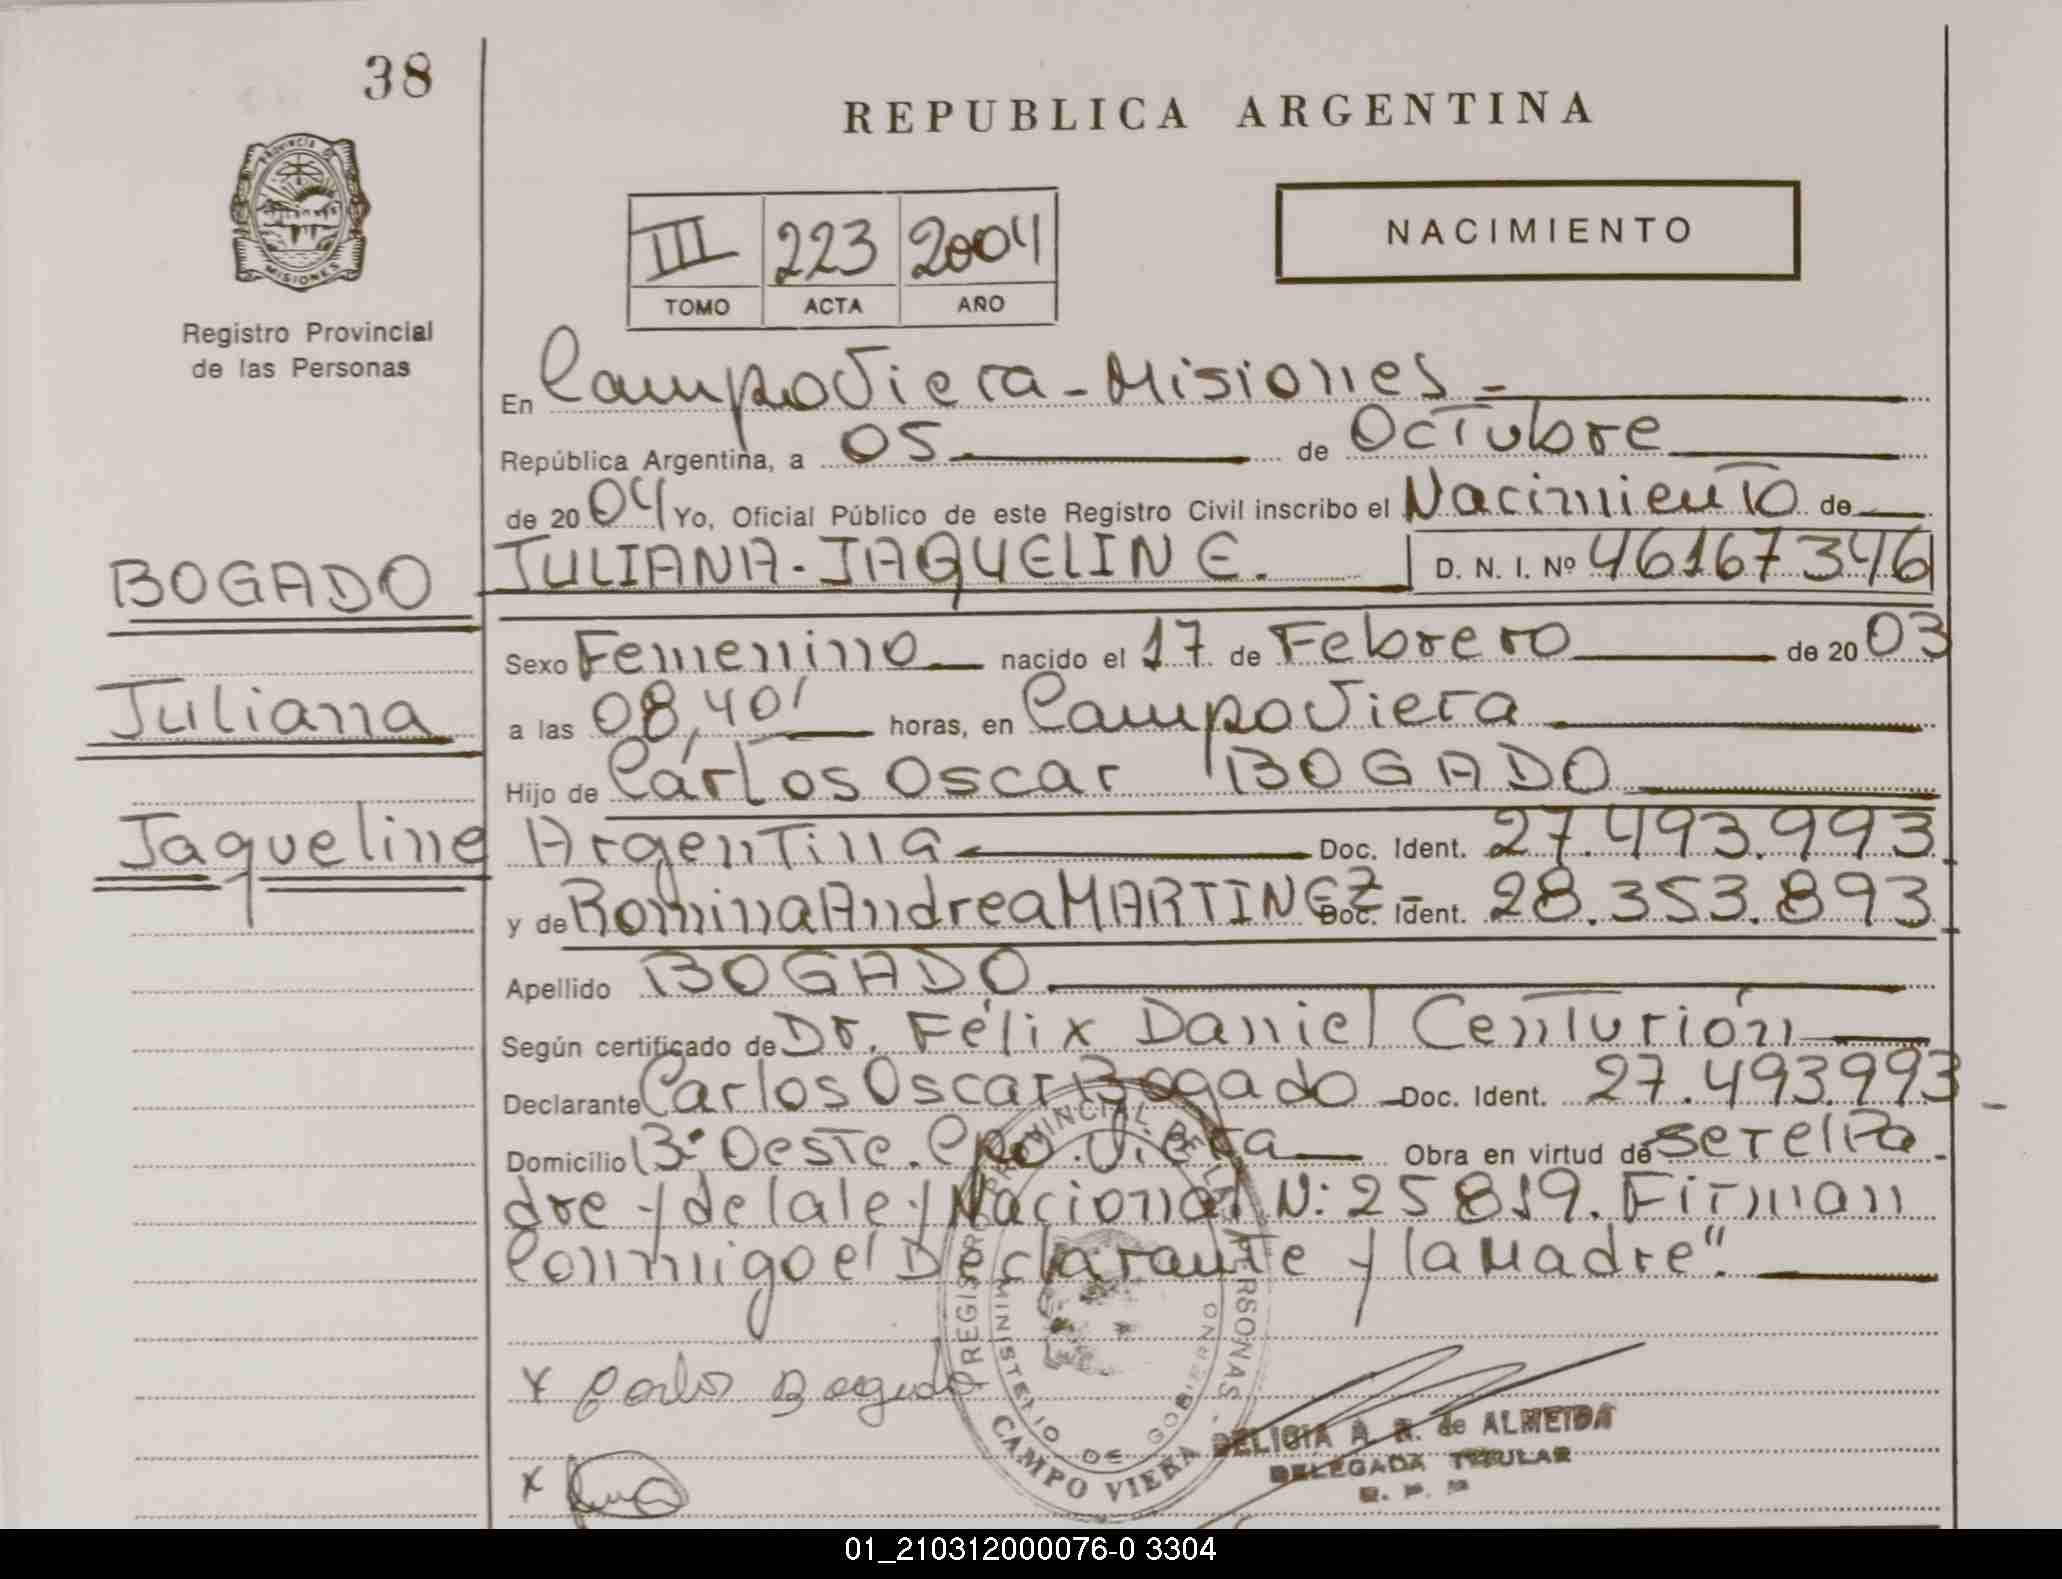 38
REPUBLICA ARGENTINA
PROVINCIA DE
MISIONES
Registro Provincial
de las Personas
NACIMIENTO
III 223 2004
TOMO ACTA AÑO
En Campo Viera - Misiones -
República Argentina, a 05 de Octubre
de 2004 Yo, Oficial Público de este Registro Civil inscribo el Nacimiento de
BOGADO JULIANA - JAQUELINE. D. N. I. Nº 46167346
Sexo Femenino nacido el 17 de Febrero de 2003
Juliana a las 08,40' horas, en Campo Viera
Hijo de Carlos Oscar BOGADO
Jaqueline Argentina Doc. Ident. 27.493.993.
y de Romina Andrea MARTINEZ - Doc. Ident. 28.353.893.
Apellido BOGADO
Según certificado de Dr. Félix Daniel Centurión
Declarante Carlos Oscar Bogado Doc. Ident. 27.493.993 -
Domicilio Bº Oeste. Cpo. Viera Obra en virtud de ser el Pa-
dre y de la ley Nacional N: 25819. Firman
Conmigo el Declarante y la Madre".
x Carlos Bogado
REGISTRO PROVINCIAL DE LAS PERSONAS.
MINISTERIO DE GOBIERNO
CAMPO VIERA
DELICIA A. R. de ALMEIDA
DELEGADA TITULAR
x
01_210312000076-0 3304